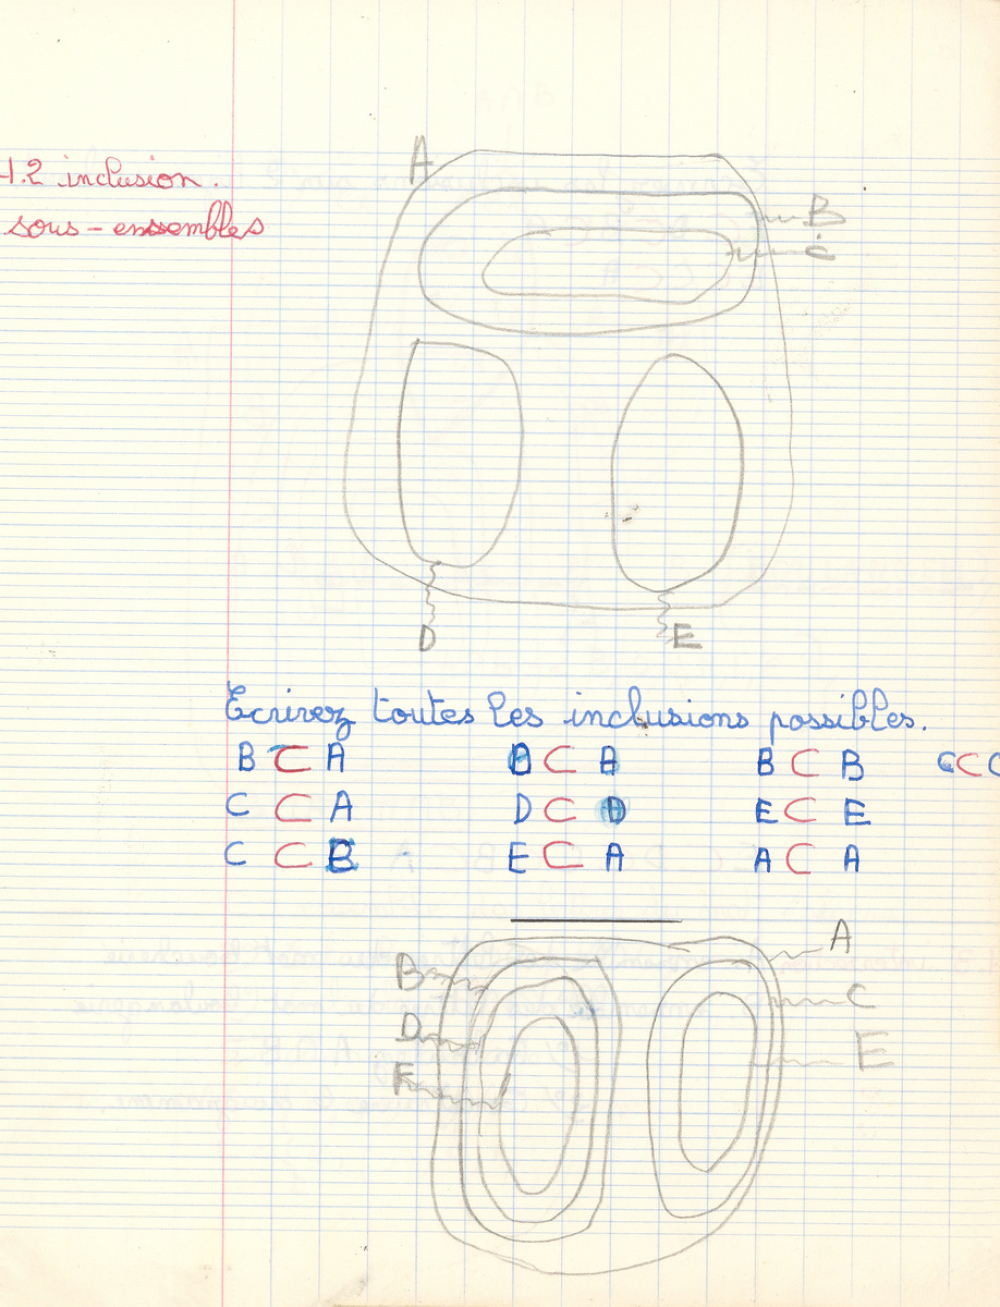 A
1.2 inclusion.
sous-ensembles
B
C
D E
Ecrivez toutes les inclusions possibles.
B ⊂ A D ⊂ A B ⊂ B C ⊂ C
C ⊂ A D ⊂ D E ⊂ E
C ⊂ B E ⊂ A A ⊂ A
A
B
C
D
E
F